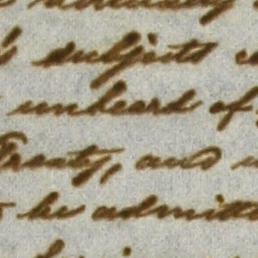 's subjects
unheard of
Treaty, and
be admitte